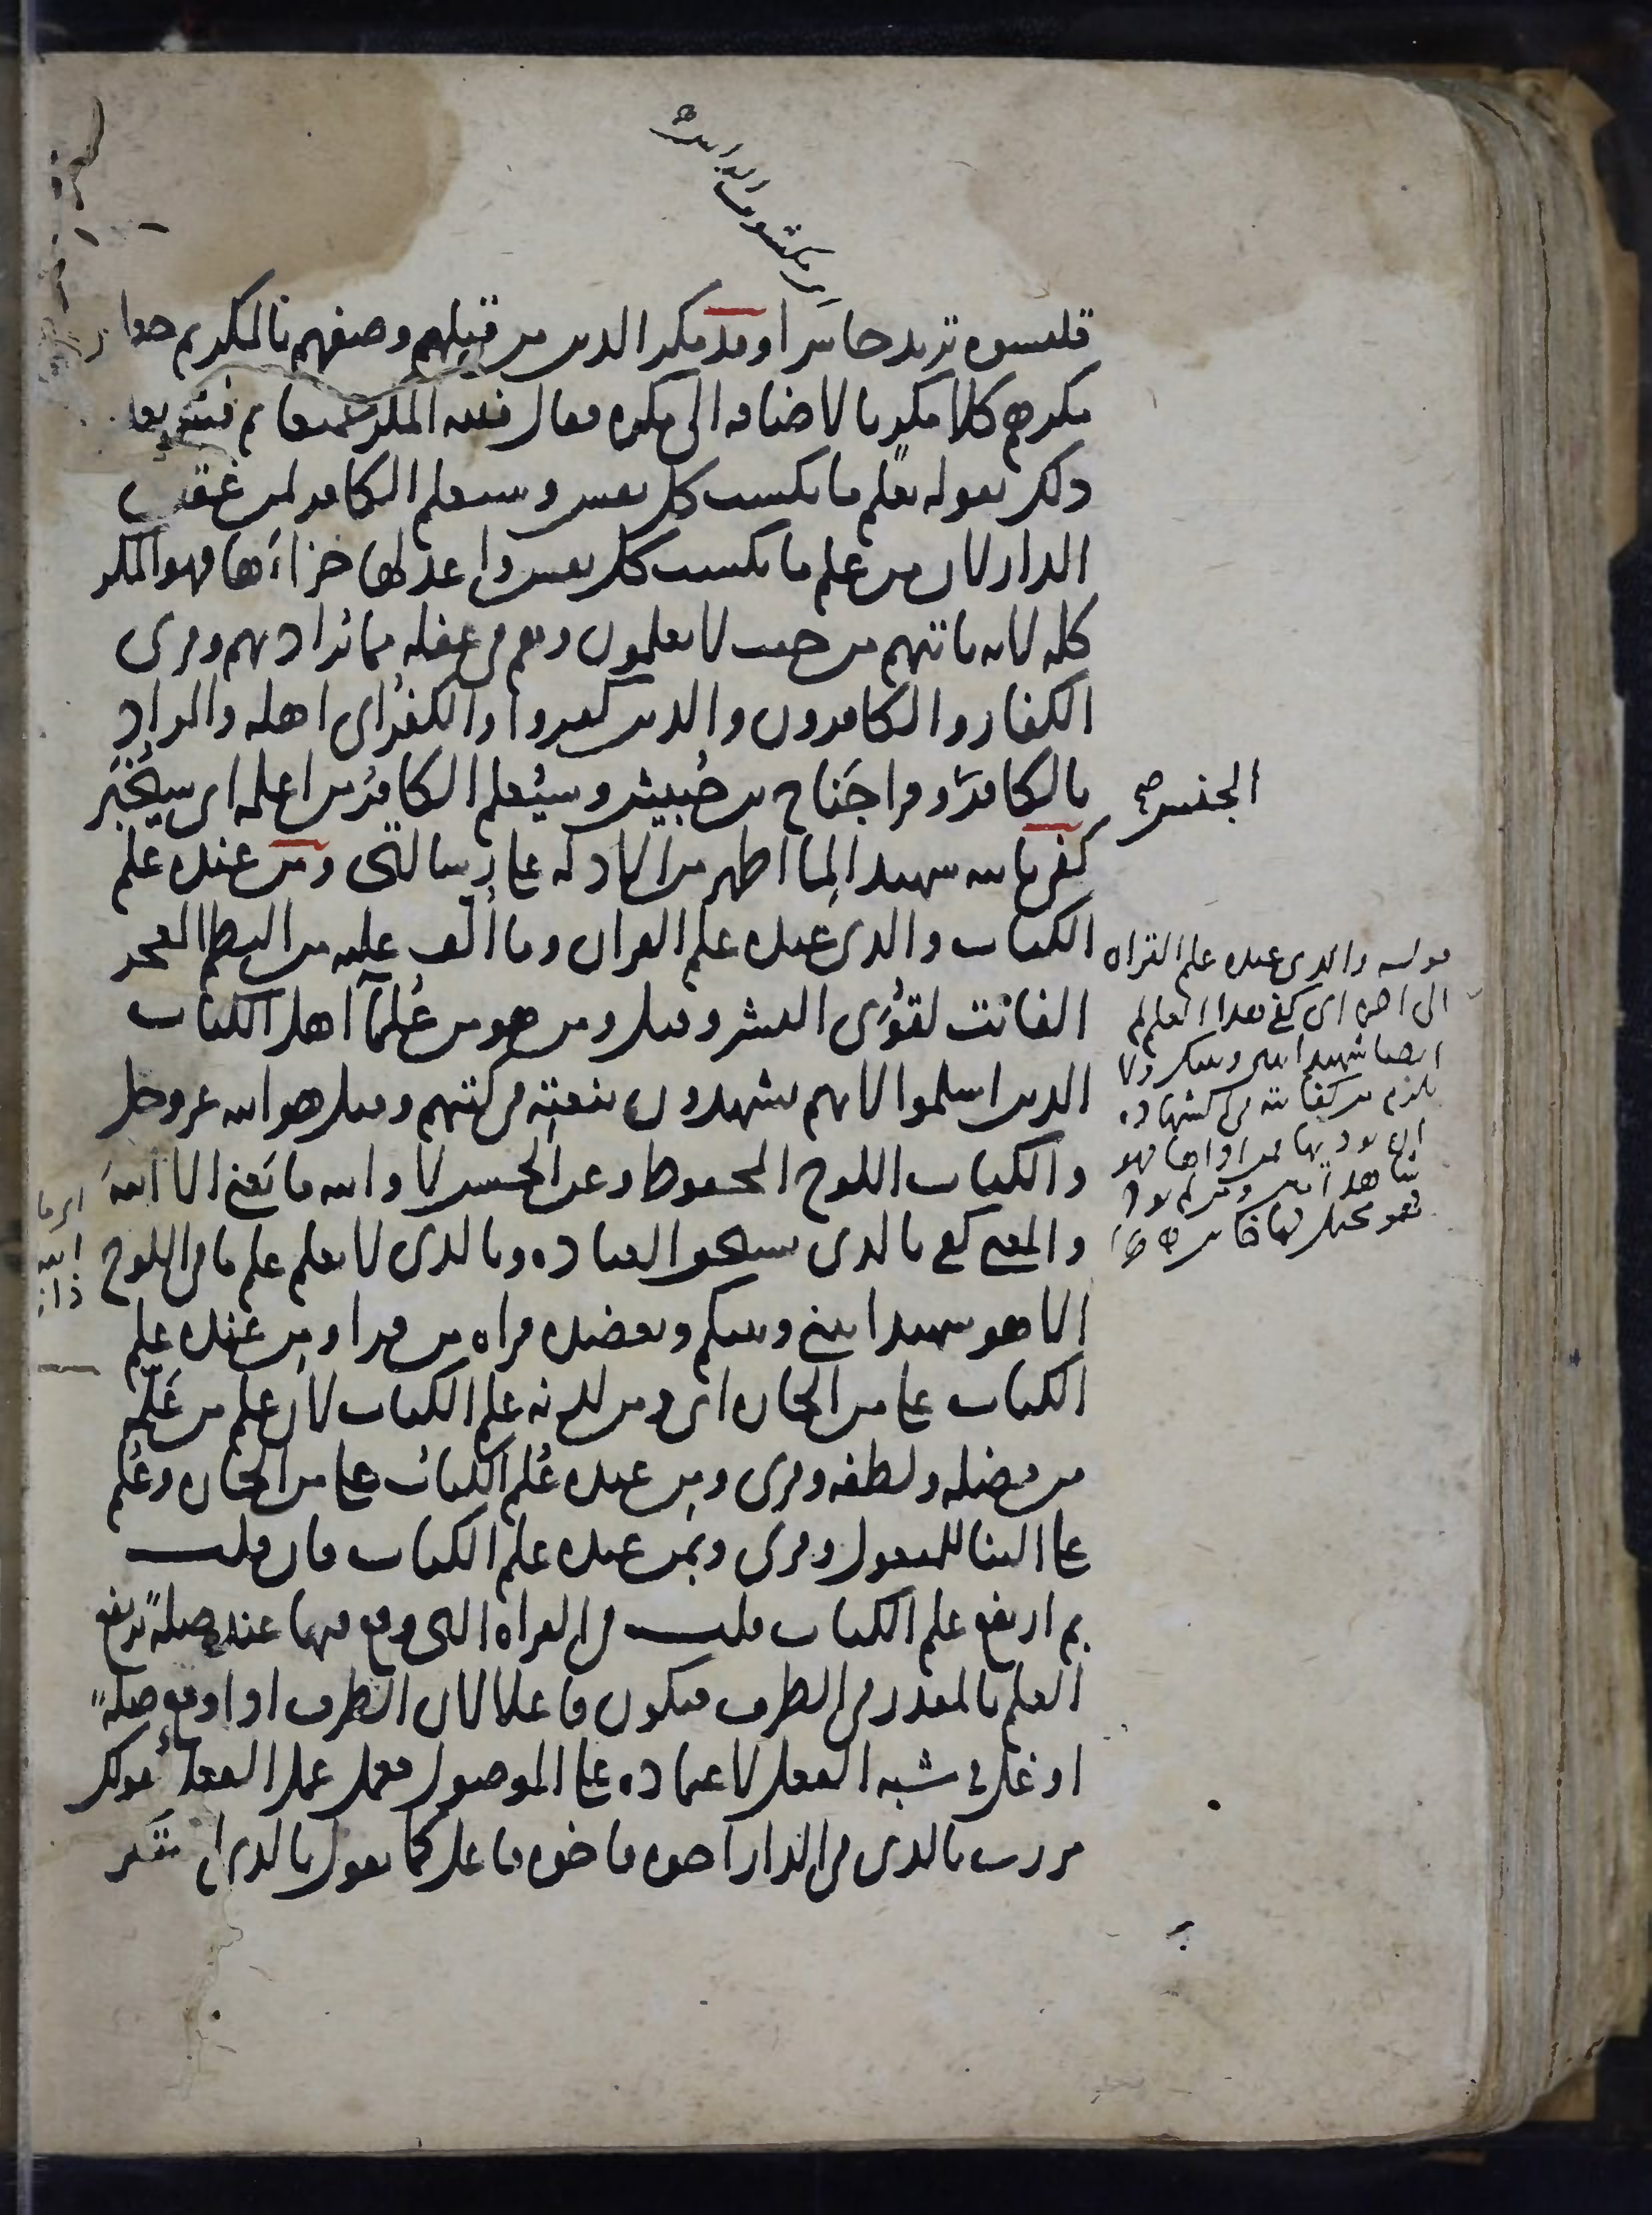 قلنسوه تريد حاسرا وقد مكر الذين من قبلهم وصفهم بالمكر ثم جعل
مكرهم كلا مكر بالاضافه الى مكره فقال فلله المكر جميعا ثم فسّر
ذلك بقوله يعلم ما تكسب كل نفس وسيعلم الكافر لمن عقبى
الدار لان من علم ما تكسب كل نفس واعد لها جزاءها فهو المكر
كله لانه ياتيهم من حيث لا يعلمون وهم في غفله مما يُراد بهم وقرى
الكفار والكافرون والذين كفروا والكفرُ اي اهله والمراد
بالكافر الجنس وقرا جَناح بن حُبيش وسيُعلم الكافرُ من اعلمه اي سيُخْبَر
كفى بالله شهيدا لِما اظهر من الادله على رسالتي ومن عنده علم
الكتاب والذي عنده علم القران وما أُلف عليه من النظم المعجز
الفائت لقُوَى البشر وقيل ومن هو من عُلمآ اهل الكتاب
الذين اسلموا لانهم يشهدون بنعته في كتبهم وقيل هو الله عز وجل
والكتاب اللوح المحفوظ وعن الحسن لا والله ما يَعني الا اللهَ
والمعنى كفى بالذي يستحق العباده وبالذي لا يعلم علم ما في اللوح
الا هو شهيدا بيني وبينكم وتعضده قراه من قرا ومِن عنده علم
الكتاب على من الجارّه اي ومن لدنه علم الكتاب لان علم من عَلّمه
من فضله ولطفه وقرى ومِن عنده عُلِمَ الكتابُ على من الجاره وعُلم
على البنا للمفعول وقرى وبمَن عنده علم الكتاب فان قلت
بم ارتفع علم الكتاب قلت في القراه التي وقع فيها عنده صلةً يرتفع
العلم بالمقدر في الظرف فيكون فاعلا لان الظرف اذا وقع صلةً
اوغل في شبه الفعل لاعتماده على الموصول فعمل عمل الفعل كقولك
مررت بالذي في الدار اخوه فاخوه فاعل كما تقول بالذي استقر
الجنس صح
قوله والذي عنده علم القران
الى اخره اي كفى هذا العالم
ايضا شهيدا بيني وبينكم ولا
يلزم من كفايته في الشهاده
ان يوديها فمن اداها فهو
شاهد امين ومن لم يود
فهو خاين